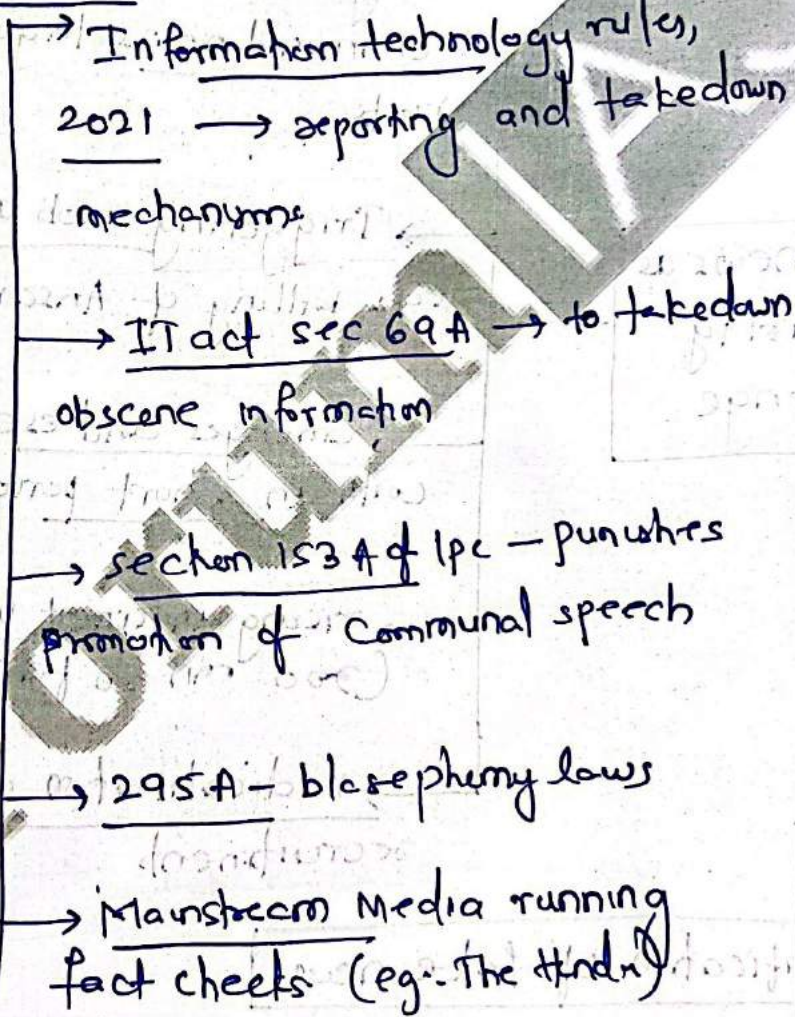 → Information technology rules,
2021 → reporting and takedown
mechanisms
→ IT act sec 69A → to takedown
obscene information
→ section 153 A of IPC – punishes
promotion of communal speech
→ 295.A – blasephemy laws
→ Mainstream Media running
fact checks (eg:. The Hindu)